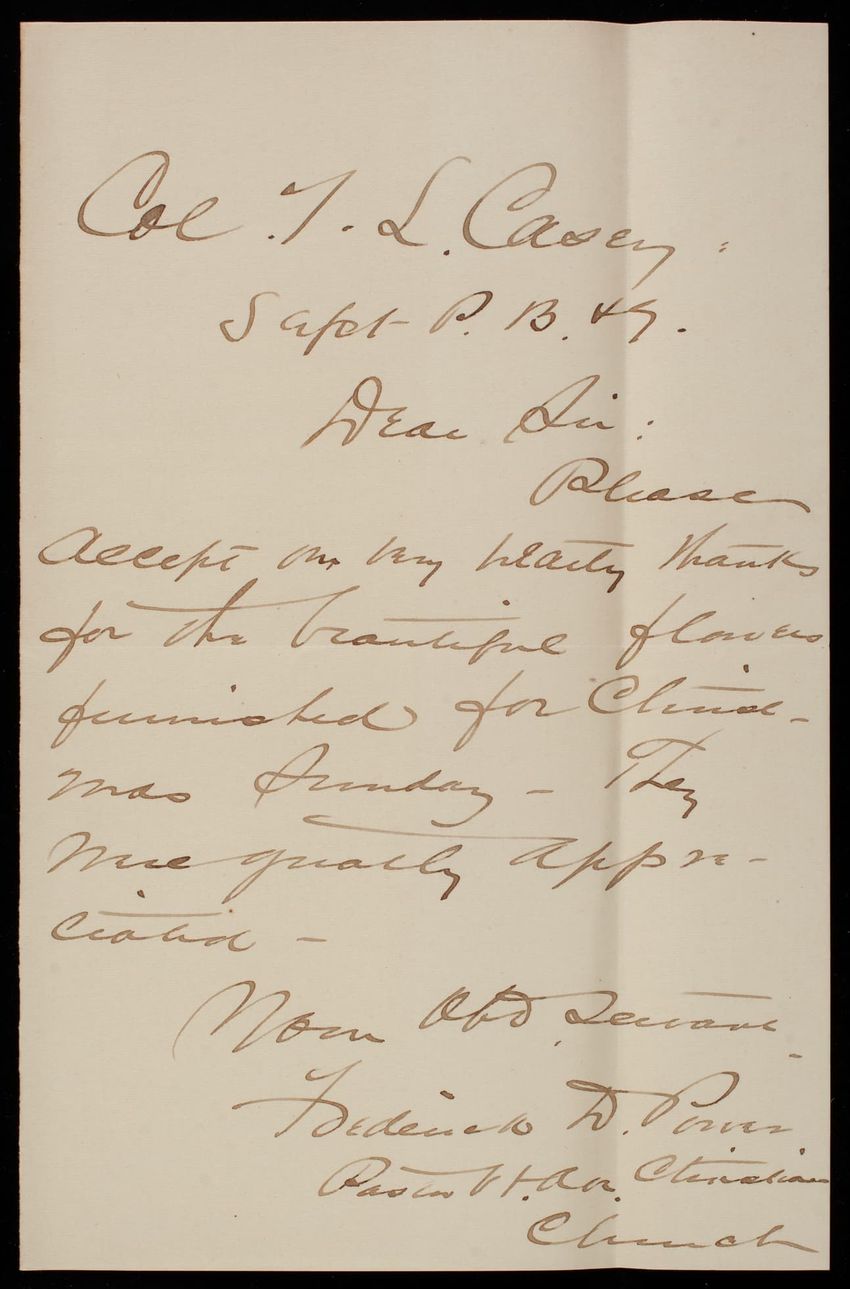 Col. T. L. Casey:
Supt P. B. & G.
Dear Sir:
Please
accept our very hearty thanks
for the beautiful flowers
furnished for Christ-
mas Sunday - They
were greatly appre-
ciated -
Your Obt. Servant.
Frederick D. Power
Pastor Vt. Ave. Christian
Church